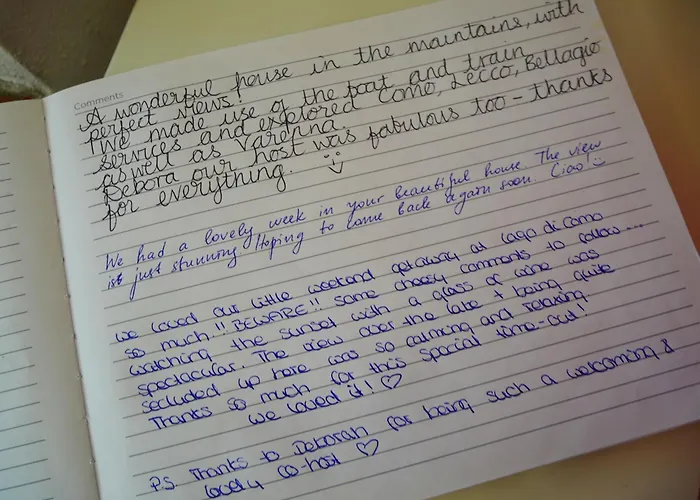 Comments
A wonderful house in the maintains, with
perfect views!
We made use of the boat and train
services and explored Como, Lecco, Bellagio
as well as Varenna.
Debora our host was fabulous too - thanks
for everything.
We had a lovely week in your beautiful house. The view
ist just stunning. Hoping to come back again soon. Ciao!
We loved our little weekend getaway at Lago di Como
so much!! BEWARE!! Some cheesy comments to follow...
Watching the sunset with a glass of wine was
spectacular. The view over the lake + being quite
secluded up here was so calming and relaxing.
Thanks so much for this special time-out!
We loved it! ♡
PS. Thanks to Deborah for being such a welcoming &
lovely co-host ♡